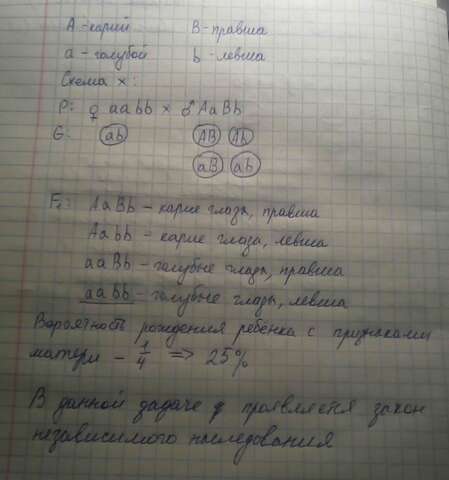 A - карий B - правша
a - голубой b - левша
Схема х:
P: ♀ aabb × ♂ AaBb
G: ab AB Ab
aB ab
F₁: AaBb – карие глаза, правша
Aabb – карие глаза, левша
aaBb – голубые глаза, правша
aabb – голубые глаза, левша
Вероятность рождения ребенка с признаками
матери – 1/4 => 25%
В данной задаче проявляется закон
независимого наследования